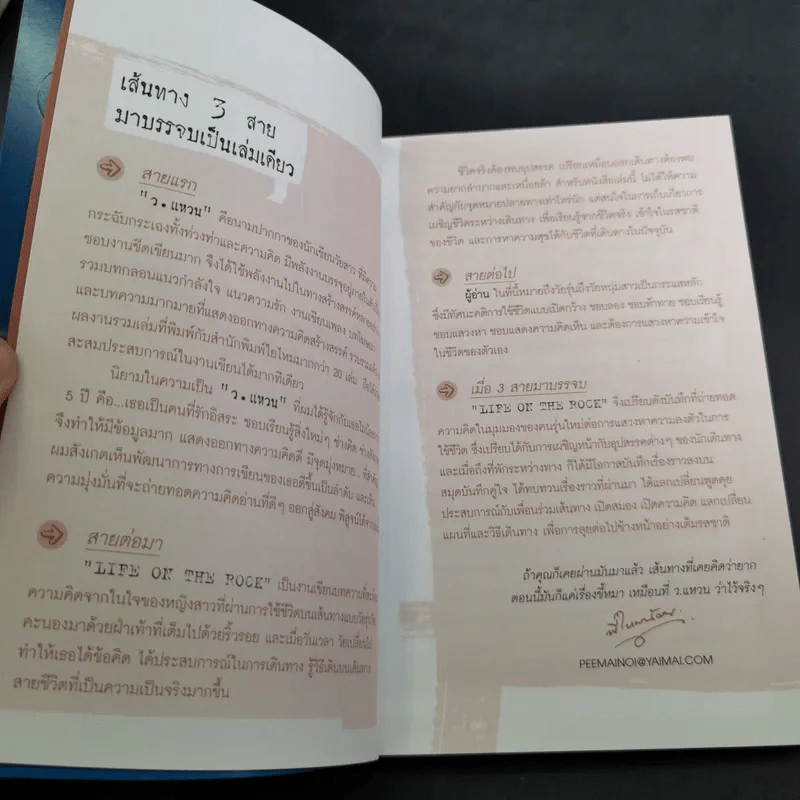 เส้นทาง 3 สาย
มาบรรจบเป็นเล่มเดียว
สายแรก
"ว.แหวน" คือนามปากกาของนักเขียนวัยสาว ที่มีความ
กระฉับกระเฉงทั้งท่วงท่าและความคิด มีพลังงานบรรจุอยู่ภายใน
ชอบงานขีดเขียนมาก จึงได้ใช้พลังงานไปในทางสร้างสรรค์
รวมบทกลอนแนวกำลังใจ แนวความรัก งานเขียนเพลง
และบทความมากมายที่แสดงออกทางความคิดสร้างสรรค์ รวมรวมแล้ว
ผลงานรวมเล่มที่พิมพ์กับสำนักพิมพ์ใยไหมมากกว่า 20 เล่ม
สะสมประสบการณ์ในงานเขียนได้มากทีเดียว
นิยามในความเป็น "ว.แหวน" ที่ผมได้รู้จักกับเธอ
5 ปี คือ...เธอเป็นคนที่รักอิสระ ชอบเรียนรู้สิ่งใหม่ๆ ช่างคิด
จึงทำให้มีข้อมูลมาก แสดงออกทางความคิดดี มีจุดมุ่งหมาย... ที่สำคัญ
ผมสังเกตเห็นพัฒนาการทางการเขียนของเธอดีขึ้นเป็นลำดับ และเห็น
ความมุ่งมั่นที่จะถ่ายทอดความคิดอ่านที่ดีๆ ออกสู่สังคม พิสูจน์ได้จาก
สายต่อมา
"LIFE ON THE ROCK" เป็นงานเขียนบทความที่
ความคิดจากในใจของหญิงสาวที่ผ่านการใช้ชีวิตบนเส้นทางแบบวัยรุ่น
คะนองมาด้วยฝ่าเท้าที่เต็มไปด้วยริ้วรอย และเมื่อวันเวลา วัยเปลี่ยนไป
ทำให้เธอได้ข้อคิด ได้ประสบการณ์ในการเดินทาง รู้วิธีเดินบนเส้นทาง
สายชีวิตที่เป็นความเป็นจริงมากขึ้น
ชีวิตจริงต้องพบอุปสรรค เปรียบเหมือนออกเดินทางต้องพบ
ความยากลำบากและเหนื่อยล้า สำหรับหนังสือเล่มนี้ ไม่ได้ให้ความ
สำคัญกับจุดหมายปลายทางเท่าไหร่นัก แต่สนใจในการเก็บเกี่ยวการ
เผชิญชีวิตระหว่างเดินทาง เพื่อเรียนรู้จากชีวิตจริง เข้าใจในรสชาติ
ของชีวิต และการหาความสุขได้กับชีวิตที่เดินทางในปัจจุบัน
สายต่อไป
ผู้อ่าน ในที่นี้หมายถึงวัยรุ่นถึงวัยหนุ่มสาวเป็นกระแสหลัก
ซึ่งมีทัศนะคติการใช้ชีวิตแบบเปิดกว้าง ชอบลอง ชอบท้าทาย ชอบเรียนรู้
ชอบแสวงหา ชอบแสดงความคิดเห็น และต้องการแสวงหาความเข้าใจ
ในชีวิตของตัวเอง
เมื่อ 3 สายมาบรรจบ
"LIFE ON THE ROCK" จึงเปรียบดังบันทึกที่ถ่ายทอด
ความคิดในมุมมองของคนรุ่นใหม่ต่อการแสวงหาความลงตัวในการ
ใช้ชีวิต ซึ่งเปรียบได้กับการเผชิญหน้ากับอุปสรรคต่างๆ ของนักเดินทาง
และเมื่อถึงที่พักระหว่างทาง ก็ได้มีโอกาสบันทึกเรื่องราวลงบน
สมุดบันทึกคู่ใจ ได้ทบทวนเรื่องราวที่ผ่านมา ได้แลกเปลี่ยนพูดคุย
ประสบการณ์กับเพื่อนร่วมเส้นทาง เปิดสมอง เปิดความคิด แลกเปลี่ยน
แผนที่และวิธีเดินทาง เพื่อการลุยต่อไปข้างหน้าอย่างเต็มรสชาติ
ถ้าคุณก็เคยผ่านมันมาแล้ว เส้นทางที่เคยคิดว่ายาก
ตอนนี้มันก็แค่เรื่องขี้หมา เหมือนที่ ว.แหวน ว่าไว้จริงๆ
PEEMAINOI@YAIMAI.COM